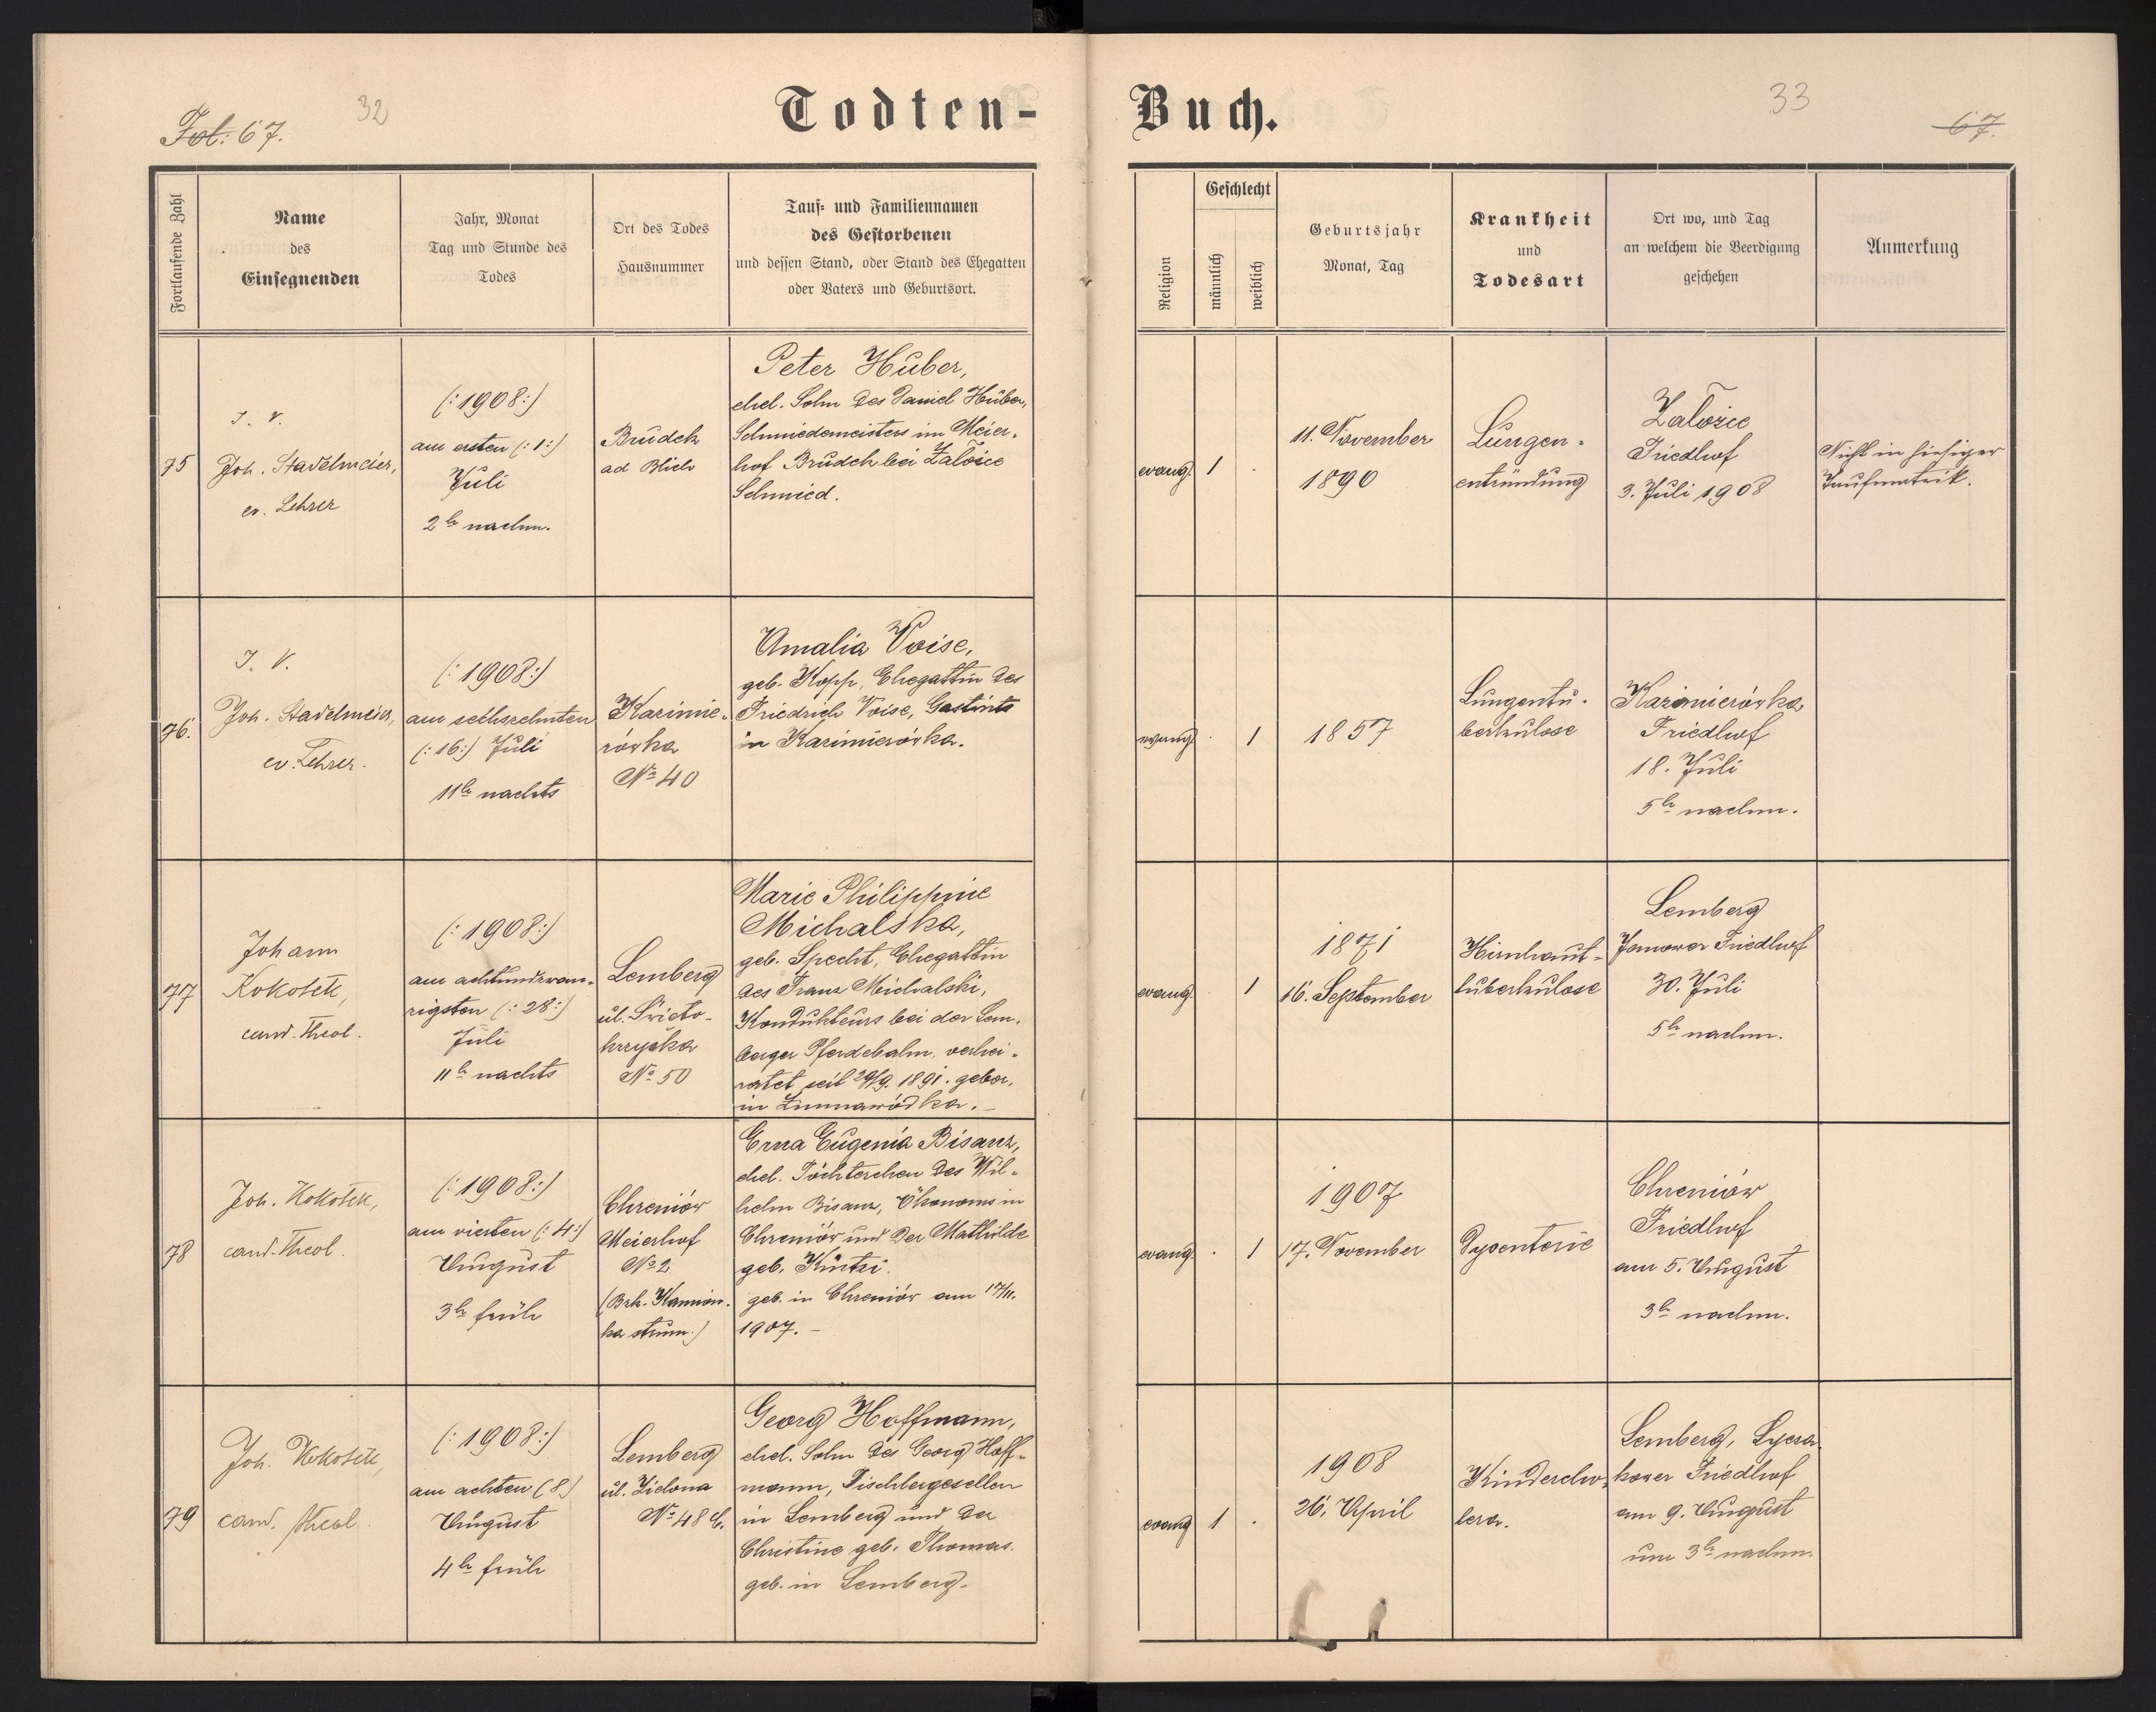 Fol: 67.
32
Todten-
Buch.
33
67.
Fortlaufende Zahl
Name
des
Einsegnenden
Jahr, Monat
Tag und Stunde des
Todes
Ort des Todes
Hausnummer
Tauf- und Familiennamen
des Gestorbenen
und dessen Stand, oder Stand des Ehegatten
oder Vaters und Geburtsort.
Religion
Geschlecht
männlich
weiblich
Geburtsjahr
Monat, Tag
Krankheit
und
Todesart
Ort wo, und Tag
an welchem die Beerdigung
geschehen
Anmerkung
75
I. V.
Joh. Stadelmeier,
ev. Lehrer
(:1908:)
am ersten (:1:)
Juli
2h nachm.
Brudek
ad Blich
Peter Huber,
ehel. Sohn des Daniel Huber,
Schmiedemeisters im Meier-
hof Brudek bei Założce
Schmied.
evang.
1
.
11. November
1890
Lungen-
entzündung
Założce
Friedhof
3. Juli 1908
Nicht in hiesiger
Taufmatrik.
76.
I. V.
Joh. Stadelmeier,
ev. Lehrer.
(:1908:)
am sechszehnten
(:16:) Juli
11h nachts
Kazimie-
rówka
No 40
Amalia Voise,
geb. Kopp, Ehegattin des
Friedrich Voise, Gastwirts
in Kazimierówka.
evang.
.
1
1857
Lungentu-
berkulose
Kazimierówka
Friedhof
18. Juli
5h nachm.
77
Johann
Kokotek,
cand. theol.
(:1908:)
am achtundzwan-
zigsten (:28:)
Juli
11h nachts
Lemberg
ul. Święto-
krzyska
No 50
Marie Philippine
Michalska,
geb. Specht, Ehegattin
des Franz Michalski,
Kondukteurs bei der Lem-
berger Pferdebahn, verhei-
ratet seit 29/9. 1891. gebor.
in Zimnawódka. –
evang.
.
1
1871
16. September
Hirnhaut-
tuberkulose
Lemberg
Janower Friedhof
30. Juli
5h nachm.
78
Joh. Kokotek,
cand. theol.
(:1908:)
am vierten (:4:)
August
3h früh
Chreniów
Meierhof
No 2
(Bzk. Kamion-
ka strum.)
Erna Eugenia Bisanz,
ehel. Töchterchen des Wil-
helm Bisanz, Ökonoms in
Chreniów und der Mathilde
geb. Küntzi.
geb. in Chreniów am 17/11.
1907. –
evang.
.
1
1907
17. November
Dysenterie
Chreniów
Friedhof
am 5. August
3h nachm.
79
Joh. Kokotek,
cand. theol.
(:1908:)
am achten (8.)
August
4h früh
Lemberg
ul. Zielona
No 48 b.
Georg Hoffmann,
ehel. Sohn des Georg Hoff-
mann, Tischlergesellen
in Lemberg und der
Christine geb. Thomas.
geb. in Lemberg.
evang
1
.
1908
26. April
Kindercho-
lera.
Lemberg, Lycza-
kower Friedhof
am 9. August
um 3h nachm.